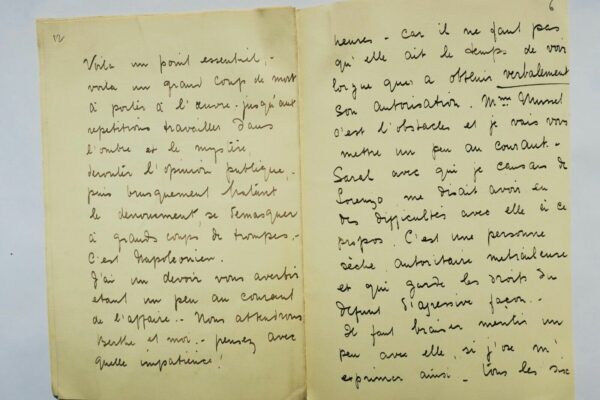 12
Voila un point essentiel, -
voila un grand coup de mort
à portés à l'œuvre - jusqu'aux
repetitions travailler dans
l'ombre et le mystère,
derouter l'opinion publique, -
puis brusquement hatant
le denouement, se demasquer
à grands coups de trompes, -
C'est Napoleonien.
J'ai un devoir vous avertir
etant un peu au courant
de l'affaire. - Nous attendrons
Berthe et moi, - pensez avec
quelle impatience!
6
heures - Car il ne faut pas
qu'elle ait le temps de voir
lorque qui a obtenir verbalement
son autorisation. Mme Musset
c'est l'obstacles et je vais vous
mettre un peu au courant. -
Sarah avec qui je causais de
Lorenzo, me disait avoir eu
des difficultés avec elle à ce
propos. C'est une personne
sèche, autoritaire
et qui garde les droits du
defunt d'agressive façon. -
Il faut mentir un
peu avec elle, si j'ose m'
exprimer ainsi - Tous les